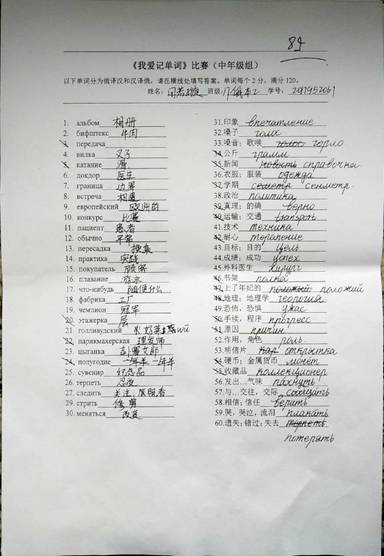 84
《我爱记单词》比赛（中年级组）
以下单词分为俄译汉和汉译俄，请在横线处填写答案，单词每个2分，满分120。
姓名： 班级： 学号：
1. альбом 相册
2. бифштекс 牛肉
3. передача
4. вилка 叉子
5. катание 滑
6. доктор 医生
7. граница 边界
8. встреча 相遇
9. европейский 欧洲的
10. конкурс 比赛
11. пациент 患者
12. обычно 平常
13. пересадка 换乘
14. практика 实践
15. покупатель 顾客
16. плавание 游泳
17. что-нибудь 随便什么
18. фабрика 工厂
19. чемпион 冠军
20. этажерка 层
21. голливудский 好莱坞的
22. парикмахерская 理发师
23. цыганка 吉普赛女郎
24. полугодие 一年半
25. сувенир 纪念品
26. терпеть 忍受
27. следить 关注，照看
28. стрить
29. меняться 改变
31.印象 впечатление
32.嗓子 голос
33.嗓音；歌喉 горло
34.公斤 грамм
35.新闻 справочни
36.衣服；服装 одежда
37.学期 семетр сенметр
38.政治 политика
39.真理；的确 верно
40.运输；交通 transпорт
41.技术 техника
42.耐心 терапение
43.目标；目的 цель
44.成绩；成功 успех
45.外科医生 хирург
46.书架 полка
47.上了年纪的 положий
48.地理；地理学 геология
49.恐怖，恐惧 ужас
50.手续，程序 прогресс
51.原因 причин
52.作用，角色 роль
53.明信片 открытка
54.硬币；金属货币 монет
55.收藏品 коллекционер
56.发出…气味 пахнуть
57.与…交往，交际 сообщать
58.相信；信任 верить
59.哭，哭泣，流泪 плакать
60.遗失；错过；失去
потерять